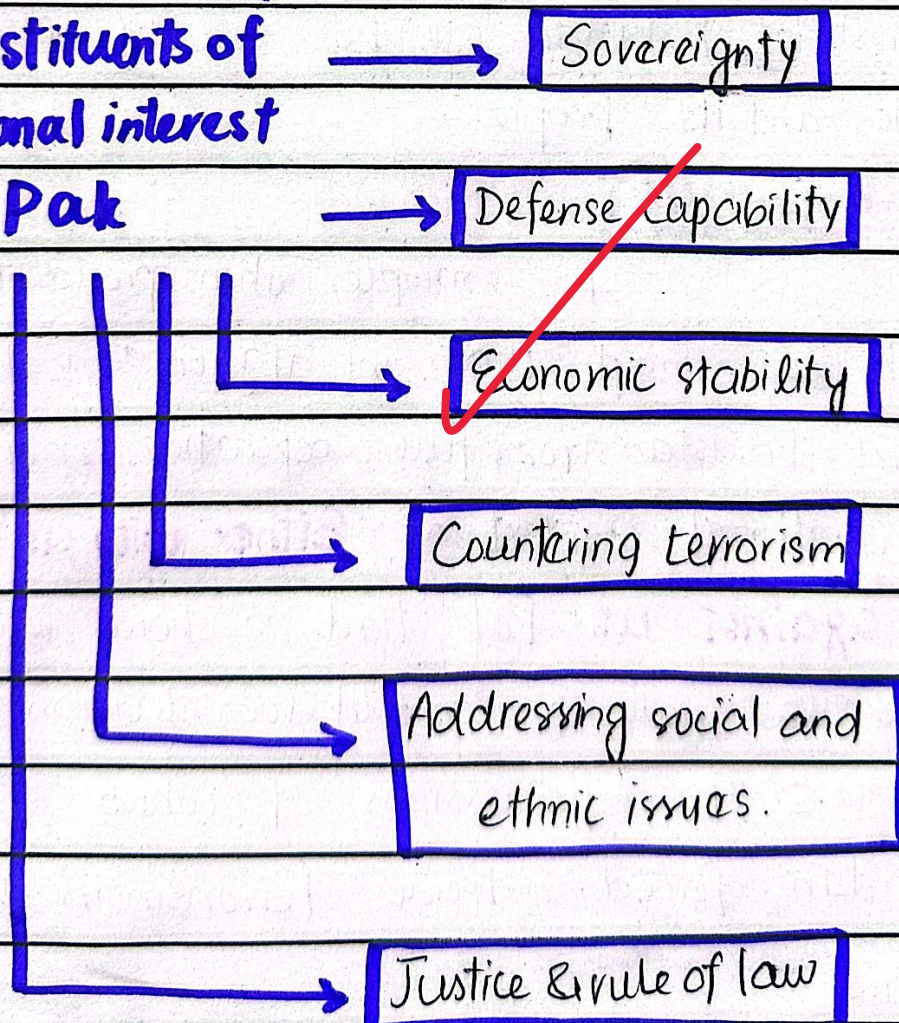 stituents of → Sovereignty
onal interest
Pak → Defense capability
Economic stability
Countering terrorism
Addressing social and
ethnic issues.
Justice & rule of law